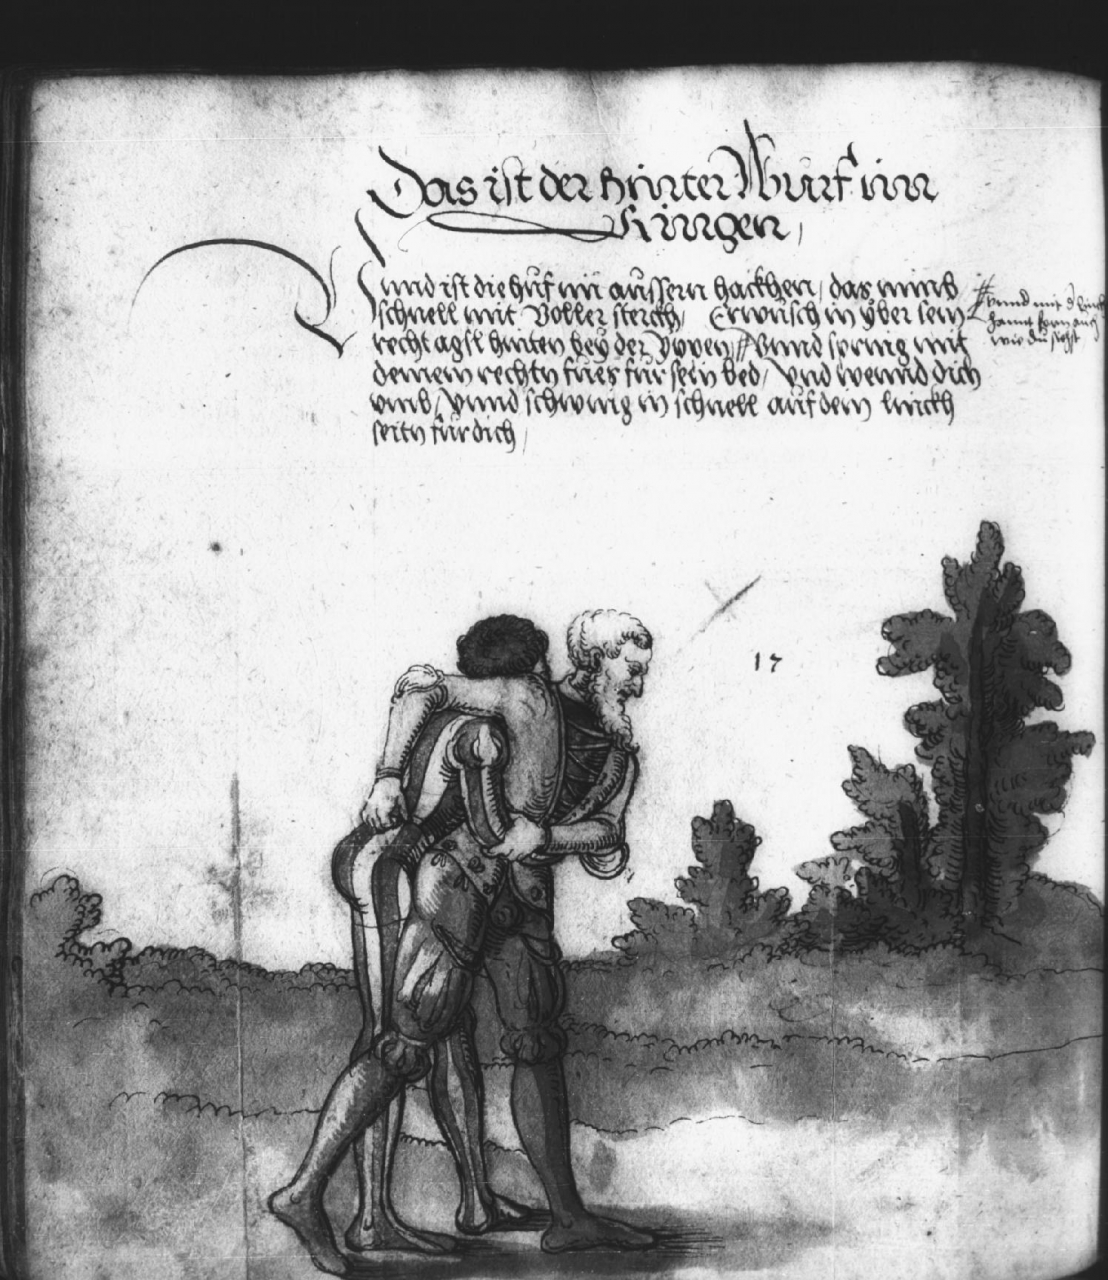 Das ist der hinter Wurf im
Ringen,
Unnd ist die huf im aussern hackhen, das nimb
schnell mit Voller sterckh, Erwüsch in yber sein
recht agsl hinten bey der Yppen # Vnnd spring mit
deinem rechtn fues für sein bed, Vnd wennd dich
vmb, Vnnd schwing in schnell auf dein linckh
seitn für dich,
# vnnd mit d linckh
hannt forn auch
wie du sichst
17